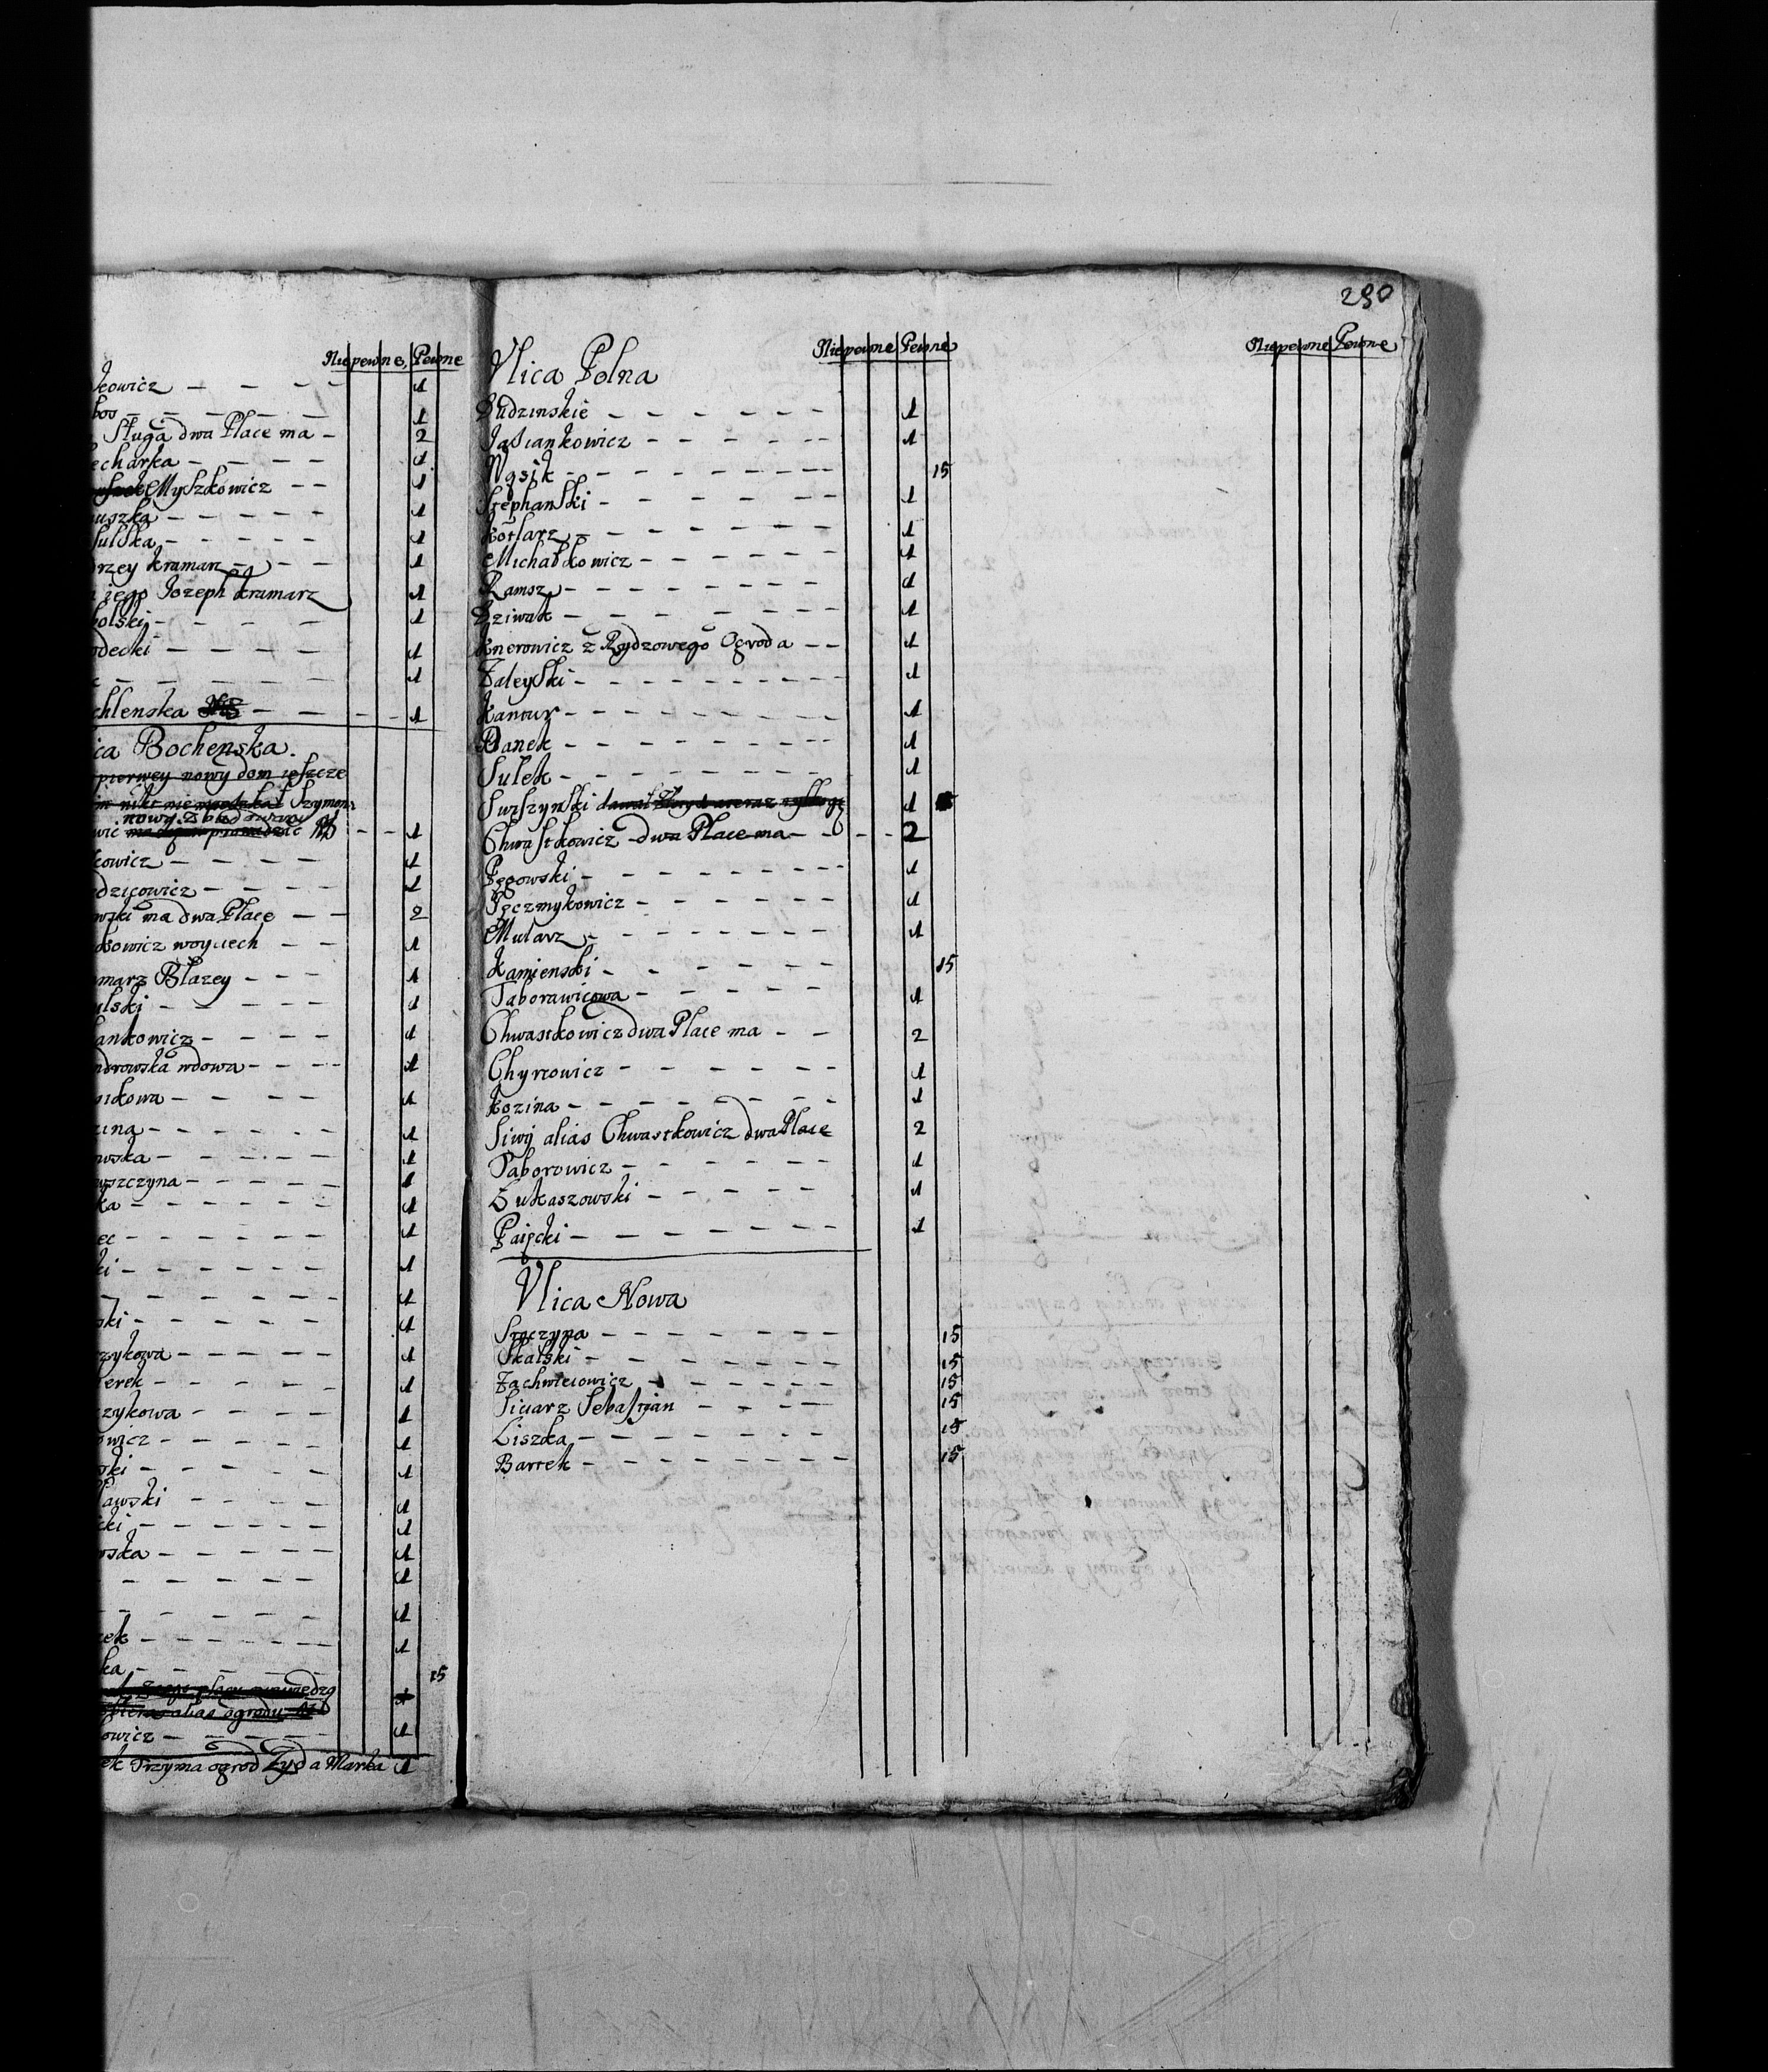 Niepewne, Pewne
kowicz - - - - 1
bos - - - - - 1
Sługa dwa Place ma - 2
echarka - - - - 1
Myszkowicz - - 1
uszka - - - - - 1
sulska - - - - - 1
drzey kramarz - - - 1
iego Jozeph kramarz 1
olski - - - - 1
odecki - - - - 1
- - - - - 1
chlenska - - - - 1
ica Bochenska.
pierwey nowy dom ieszcze
nikt nie mieszkał Szymon
nowy zbudowany
wic - - 1
kowicz - - - - 1
edzicowicz - - - - 1
wski ma dwa Place - - 2
osowicz woyciech - - 1
marz Błazey - - - 1
ulski - - - - - 1
ankowicz - - - - 1
ndrowska wdowa - - - - 1
kowa - - - - 1
zina - - - - - 1
wska - - - - - 1
wszczyna - - - - - 1
ka - - - - - - 1
ec - - - - - - 1
ki - - - - - - 1
- - - - - - 1
ski - - - - - - 1
zykowa - - - - - 1
erek - - - - - 1
zykowa - - - - 1
owicz - - - - - 1
ski - - - - - 1
ławski - - - - 1
cki - - - - - - 1
wska - - - - - 1
- - - - - - 1
- - - - - - 1
zek - - - - - - 1
ka - - - - - 15
alias ogrodu
owicz - - - - - 1
ek Trzyma ogrod Zyda Marka 1
290
Niepewne Pewne
Vlica Polna
Budzinskie - - - - - - 1
Jasiankowicz - - - - - 1
Wąsik - - - - - - - - 15
Stephanski - - - - - - 1
kotlarz - - - - - - - 1
Michałkowicz - - - - - - 1
Ramsz - - - - - - - 1
Dziwak - - - - - - - 1
knerowicz z Rydzowego Ogroda - - 1
Zaleyski - - - - - - - - - 1
kantur - - - - - - - - - 1
Banek - - - - - - - - 1
Sulek - - - - - - - - 1
Surszynski 1
Chwastkowicz dwa Place ma - - - - 2
Pęgowski - - - - - - - - 1
Pęczmykowicz - - - - - - 1
Mularz - - - - - - - - 1
Kamienski - - - - - - 15
Taborawicowa - - - - - 1
Chwastkowicz dwa Place ma - - 2
Chyrcowicz - - - - - - 1
kozina - - - - - - - 1
Siwy alias Chwastkowicz dwa Place 2
Taborowicz - - - - - - 1
Łukaszowski - - - - - 1
Paięcki - - - - - - 1
Vlica Nowa
Sroczyna - - - - - - - 15
Skalski - - - - - - - 15
Zachwieiowicz - - - - - - 15
Siciarz Sebastyan - - - - 15
Liszka - - - - - - - 15
Bartek - - - - - - - - 15
Niepewne Pewne